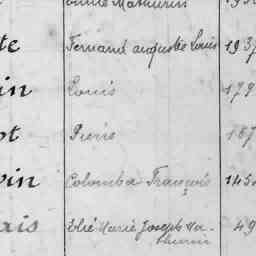 Mathurin
te Fernand auguste Louis 193
in Louis 179
ot Pierre 187
vin Colomba François 145
ais Elié Marie Joseph Ma-
thurin 49